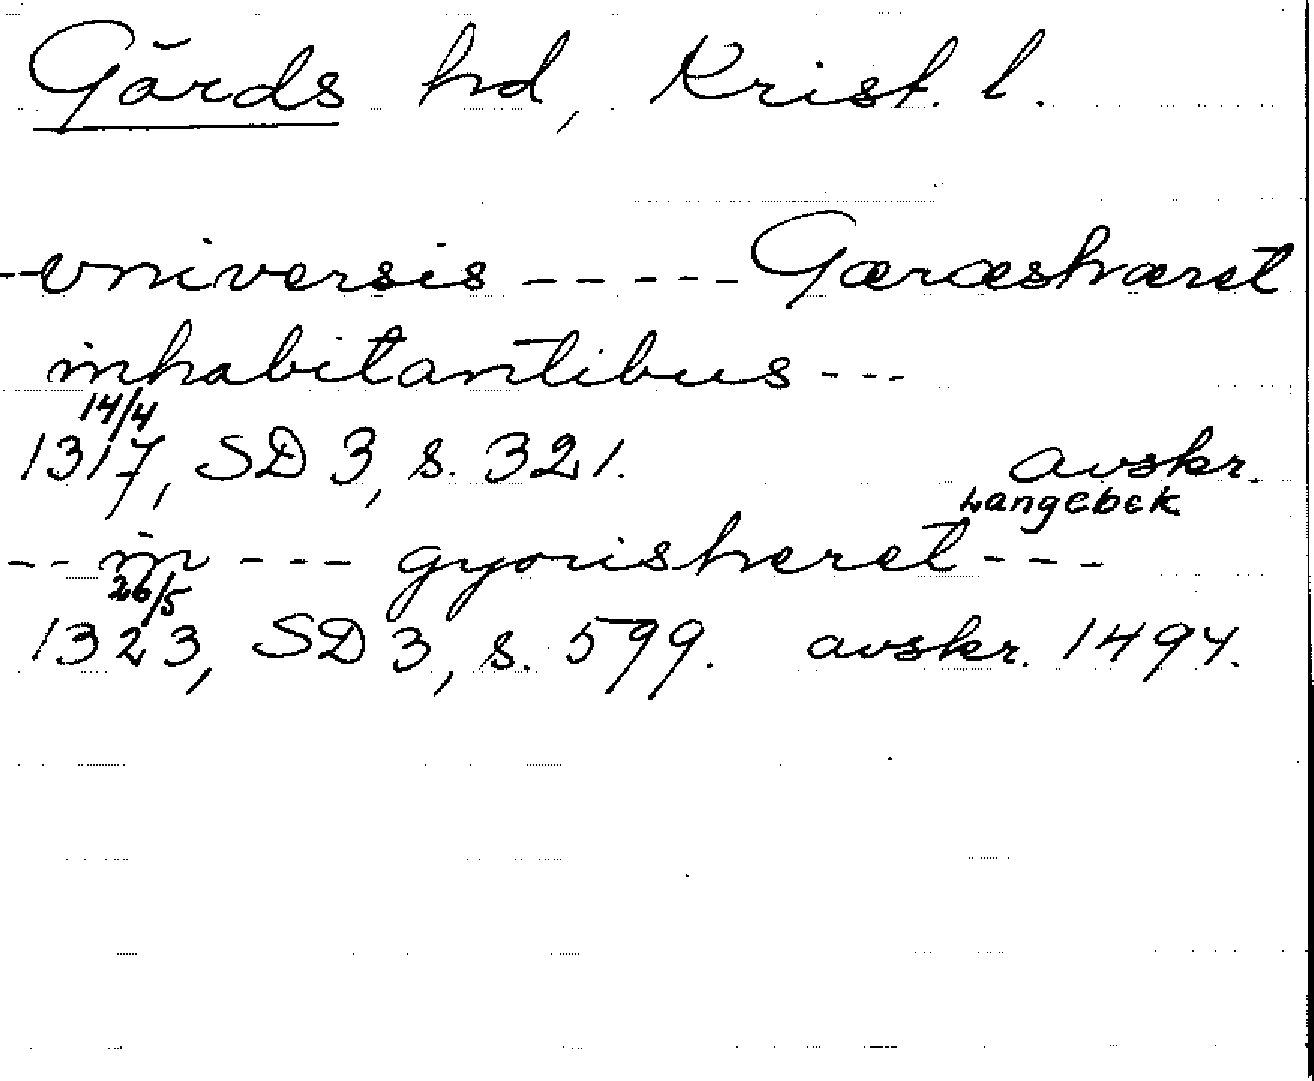 Gärds hd, Krist. l.
--vniversis ----- Gæræshæret
inhabitantibus ---
14/4
1317, SD 3, s. 321. avskr.
Langebek
-- in --- gyorisheret ---
26/5
1323, SD 3, s. 599. avskr. 1494.